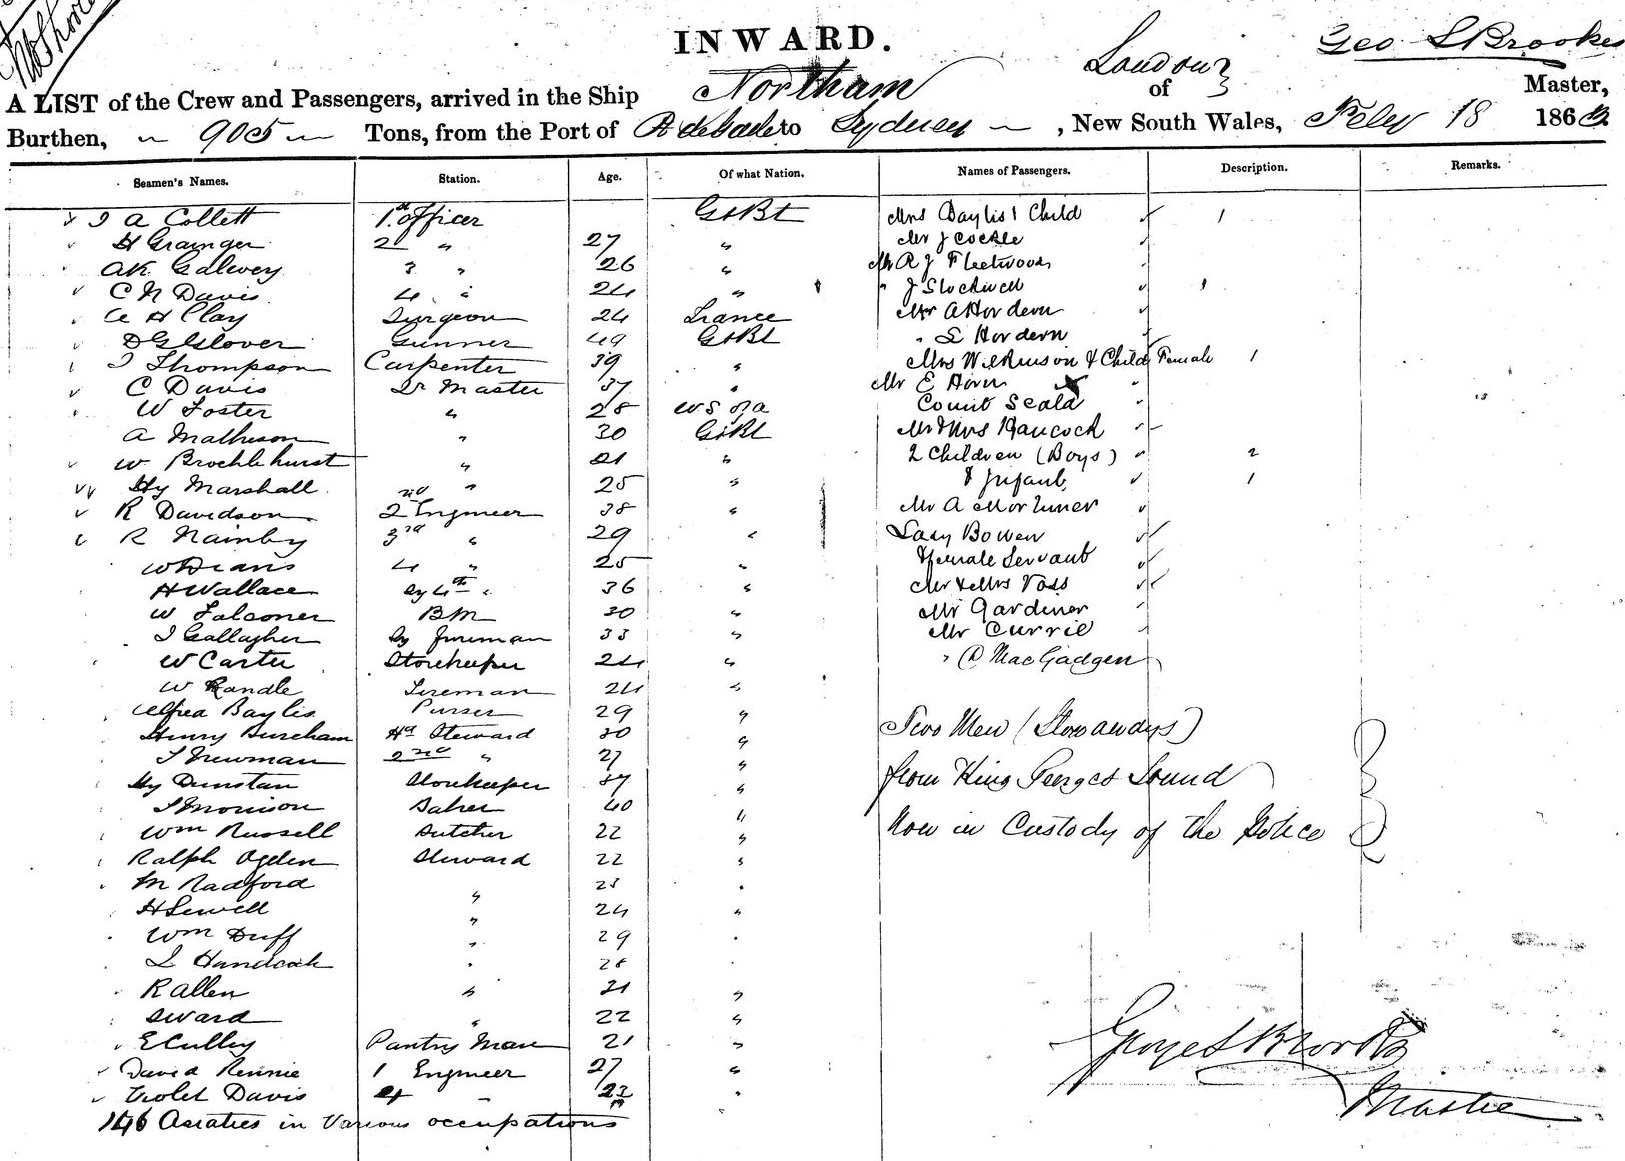 INWARD.
Geo S Brookes
A LIST of the Crew and Passengers, arrived in the Ship Northam of London Master,
Burthen, 905 Tons, from the Port of to Sydney, New South Wales, Feby 18 186
Seamen's Names. Station. Age. Of what Nation. Names of Passengers. Description. Remarks.
J A Collett 1st officer Gt Bt Mrs Baylis 1 Child 1
H Grainger 2 " 27 " Mr J Cockle
AK Galwey 3 " 26 " Mr R J Fleetwood
C N Davis 4 " 24 " " J Stockwell 1
A H Clay Surgeon 24 France Mr A Hordern
D G Glover Gunner 49 Gt Bt " S Hordern
J Thompson Carpenter 39 " Mrs Wilkinson & Child Female 1
C Davis Qr Master 37 " Mr E
W Foster " 28 Count Scala
A Mathison " 30 Gt Bt Mr & Mrs Hancock
W Brocklehurst " 21 " 2 Children (Boys) 2
Hy Marshall " 25 " & Infant 1
R Davidson 2nd Engineer 38 " Mr A Mortimer
R Nainby 3rd " 29 " Lady Bowen
W Deans 4 " 25 " & female Servant
H Wallace 4th " 36 " Mr & Mrs Voss
W Falconer BM 30 " Mr Gardiner
J Gallagher 33 " Mr Currie
W Carter Storekeeper 24 " " D MacGadgen
W Randle Fireman 24 "
Alfred Baylis Purser 29 " Two Men (Stowaways)
Henry Burcham Hd Steward 30 "
J Newman 2nd " 27 "
Hy Dunstan Storekeeper 37 " from King Georges Sound
J Morrison Baker 40 "
Wm Russell Butcher 22 " Now in Custody of the Police
Ralph Ogden Steward 22 "
M Radford " 23 "
H Sewell " 24 "
Wm Duff " 29 "
Handcock " 28 "
R Allen " 21 "
Ward " 22 "
E Culley Pantry Man 21 "
David Rennie 1 Engineer 27 "
Violet Davis 23 "
146 Asiatics in Various occupations
George S Brookes
Master